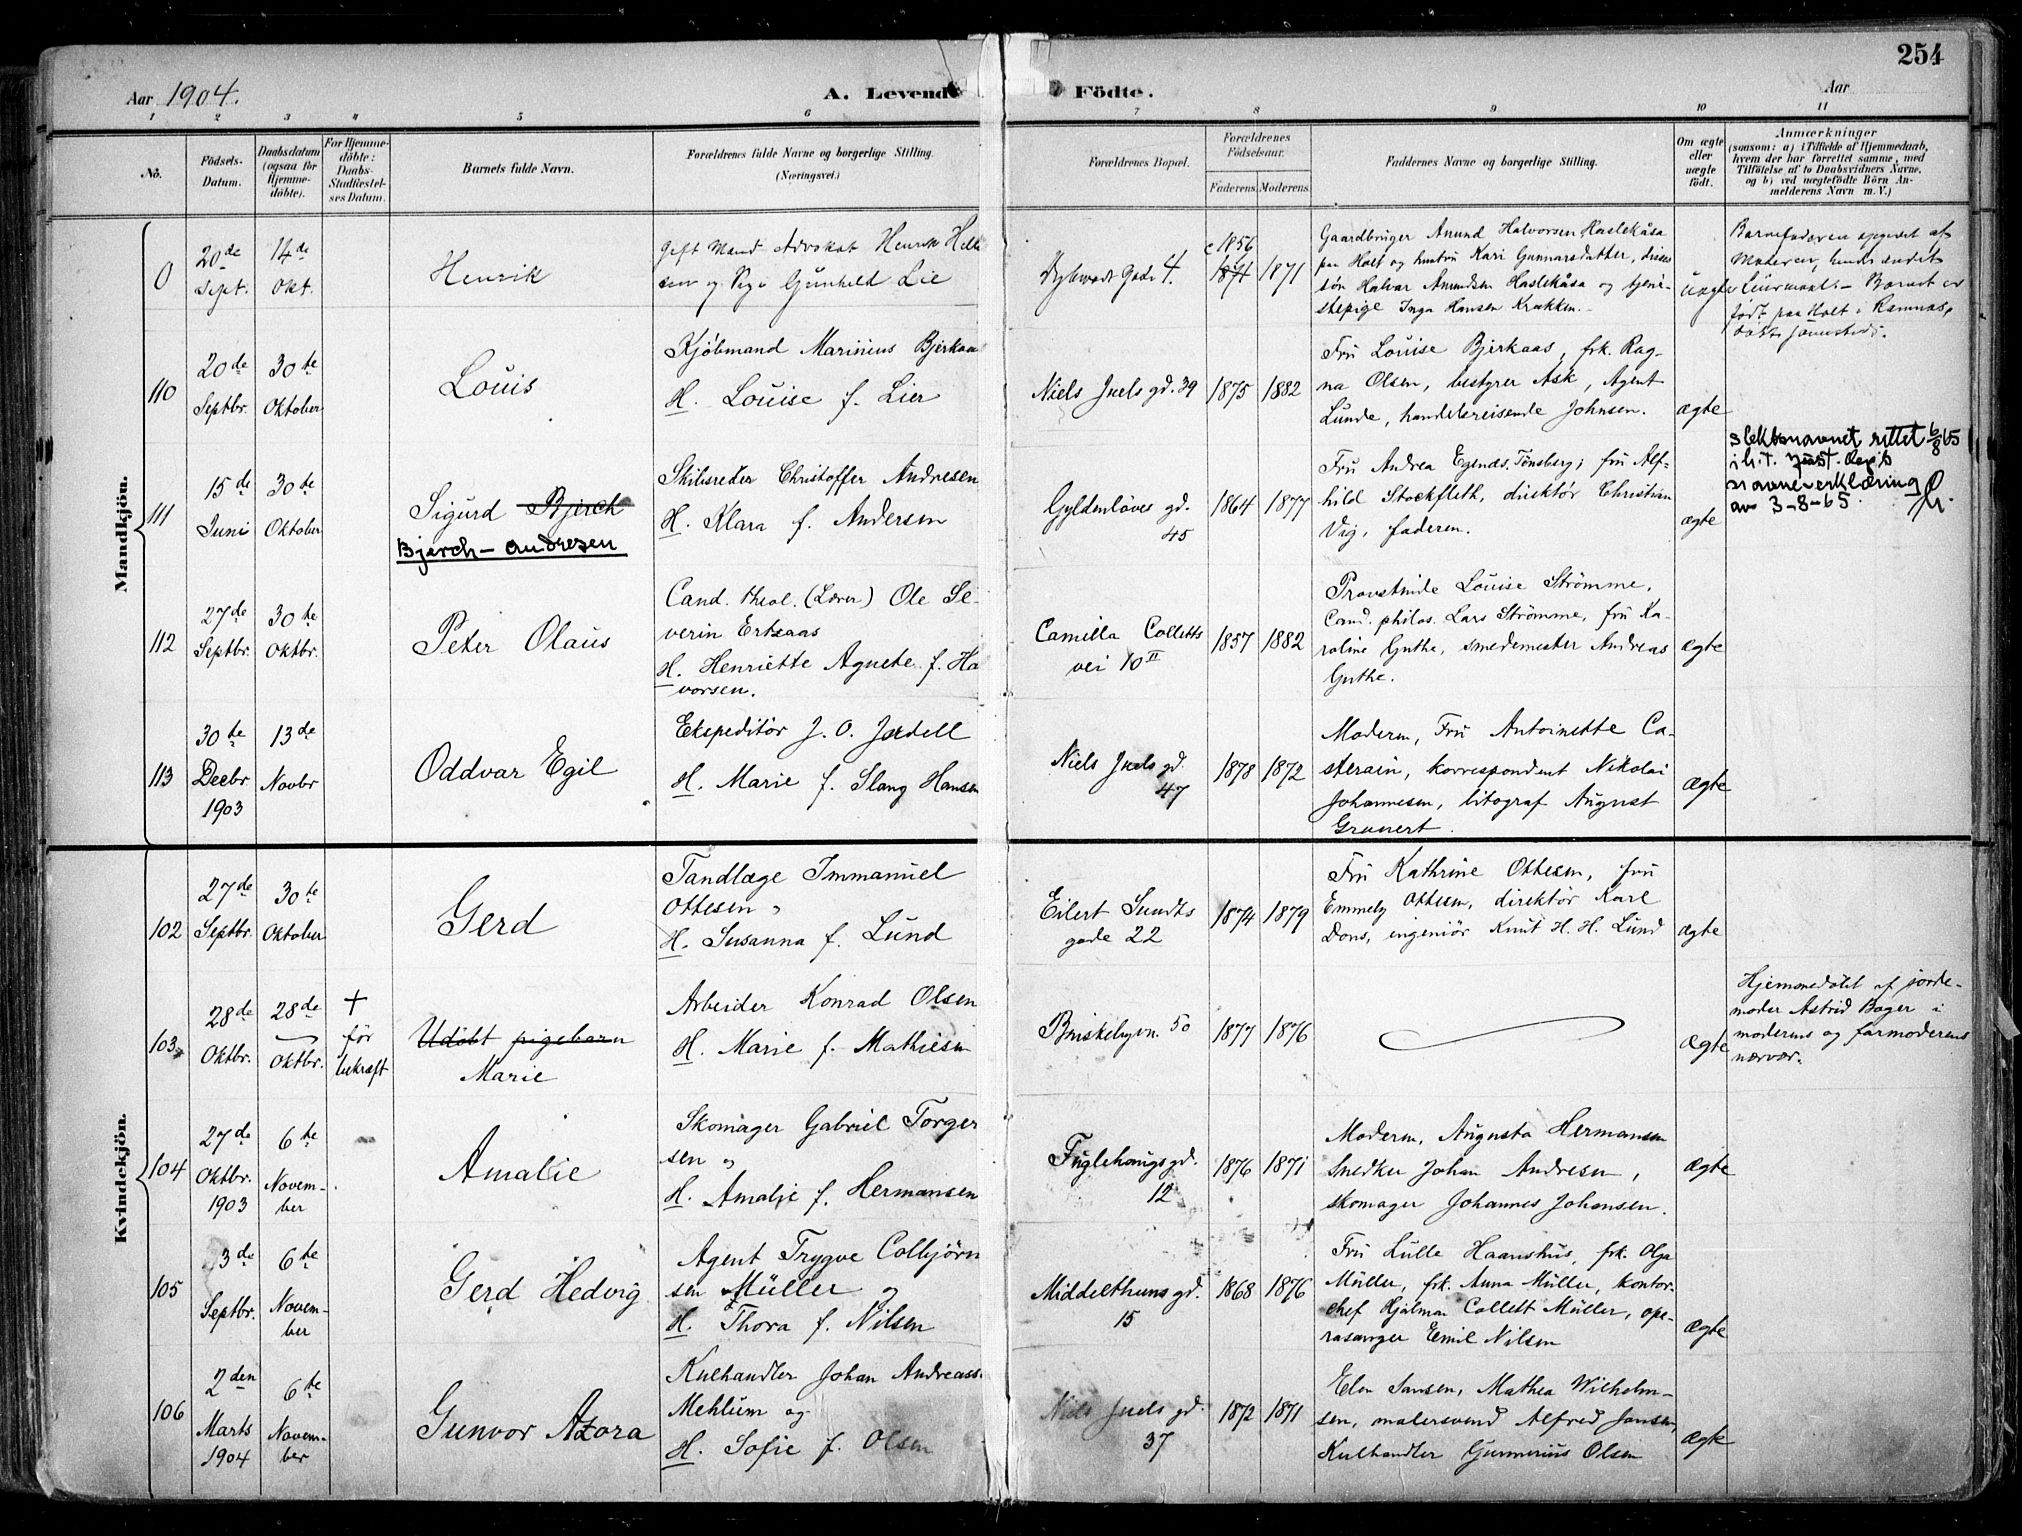 254
Aar 1904.
A. Levende Födte.
Aar
1 2 3 4 5 6 7 8 9 10 11
No.
Födsels-Datum.
Daabsdatum (ogsaa for Hjemme-döbte).
For Hjemme-döbte: Daabs-Stadfæstel-ses Datum.
Barnets fulde Navn.
Forældrenes fulde Navne og borgerlige Stilling.
(Næringsvei.)
Forældrenes Bopæl.
Forældrenes Födselsaar.
Faderens. Moderens.
Faddernes Navne og borgerlige Stilling.
Om ægte eller uægte födt.
Anmærkninger
(saasom: a) i Tilfælde af Hjemmedaab,
hvem der har forrettet samme, med
Tilföielse af to Daabsvidners Navne,
og b) ved uægtefödte Börn An-
melderens Navn m. V.)
Mandkjön.
0
20de Sept.
14de Okt.
Henrik
Gift Mand Advokat Henrik Helle
sen og Pige Gunhild Lie
Dybwads Gade 4.
c 1856
1874 1871
Gaardbruger Anund Halvorsen Haslekåsa
paa Holt og hustru Kari Gunnarsdatter, disses
søn Halvar Anundsen Haslekåsa og tjene-
stepige Inga Hansen Krakken.
uægte
Barnefaderen opgivet af
Moderen,
Barnet er
født paa Holt i Ramnæs,
døbt sammesteds.
110
20de Septbr.
30te Oktober
Louis
Kjöbmand Marinius Bjerkaas
H. Louise f. Lier
Niels Juels gd. 39
1875 1882
Fru Louise Bjerkaas, frk. Rag-
na Olsen, bestyrer Ask, Agent
Lunde, handelsreisende Johnsen.
ægte
111
15de Juni
30te Oktober
Sigurd Bjerch
Bjerch-Andresen
Skibsreder Christoffer Andresen
H. Klara f. Andersen
Gyldenløves gd. 45
1864 1877
Fru Andrea Egenæs, Tønsberg; fru Alf-
hild Stockfleth, direktør Christian
Vig, faderen.
ægte
slektsnavnet rettet 6/8 65
i h.t. Just. depts
navneerklæring
av 3-8-65.
112
27de Septbr.
30te Oktbr.
Peter Olaus
Cand. theol. (Lærer) Ole Se-
verin Ertzaas
H. Henriette Agnete f. Ha
vorsen.
Camilla Colletts vei 10 II
1857 1882
Provstinde Louise Strömme,
Cand. philos. Lars Strömme, fru Ka-
roline Guthe, smedemester Andreas
Guthe.
ægte
113
30te Decbr 1903
13de Novbr
Oddvar Egil
Ekspeditör J. O. Jxdell
H. Marie f. Slang Hansen
Niels Juels gd. 47
1878 1872
Moderen, Fru Antoinette Ca-
sterain, korrespondent Nikolai
Johannesen, litograf August
Gravert.
ægte
Kvindekjön.
102
27de Septbr.
30te Oktober
Gerd
Tandlæge Immanuel
Ottesen
H. Susanna f. Lund
Eilert Sundts gade 22
1874 1879
Fru Kathrine Ottesen, fru
Emmely Ottesen, direktör Karl
Dons, ingeniör Knut H. H. Lund
ægte
103
28de Oktbr.
28de Oktbr.
+ för bekræft
Udöbt pigebarn
Marie
Arbeider Konrad Olsen
H. Marie f. Mathiesen
Briskebyvn. 50
1877 1876
ægte
Hjemmedöbt af jorde-
moder Astrid Bager i
moderens og farmoderens
nærvær.
104
27de Oktbr. 1903
6te Novem-ber
Amalie
Skomager Gabriel Torger
sen og
H. Amalie f. Hermansen
Fuglehaugsgd. 12
1876 1871
Moderen, Augusta Hermansen
Snedker Johan Andresen,
skomager Johannes Johansen.
ægte
105
3de Septbr.
6te Novem-ber
Gerd Hedvig
Agent Trygve Colbjörn
sen Müller og
H. Thora f. Nilsen
Middelthunsgd. 15
1868 1876
Fru Lulle Haanshus, frk. Olga
Müller, frk. Anna Müller, kontor-
chef Hjalmar Collett Müller, ope-
rasanger Eimil Nilsen
ægte
106
2den Marts 1904
6te Novem-ber
Gunvor Azora
Kulhandler Johan Andreass
Mehlum og
H. Sofie f. Olsen
Niels Juels gd. 37
1872 1871
Elen Jansen, Mathea Wilhelm-
sen, malersvend Alfred Jansen,
Kulhandler Gunnerius Olsen
ægte